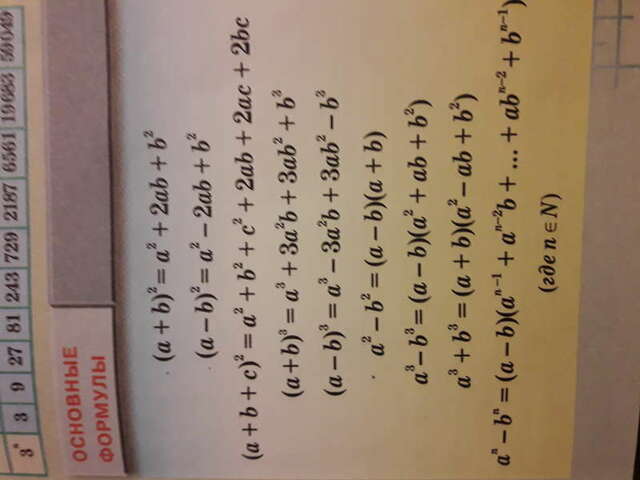 3ⁿ 3 9 27 81 243 729 2187 6561 19683 59049
ОСНОВНЫЕ
ФОРМУЛЫ
(a + b)² = a² + 2ab + b²
(a − b)² = a² − 2ab + b²
(a + b + c)² = a² + b² + c² + 2ab + 2ac + 2bc
(a + b)³ = a³ + 3a²b + 3ab² + b³
(a − b)³ = a³ − 3a²b + 3ab² − b³
a² − b² = (a − b)(a + b)
a³ − b³ = (a − b)(a² + ab + b²)
a³ + b³ = (a + b)(a² − ab + b²)
aⁿ − bⁿ = (a − b)(aⁿ⁻¹ + aⁿ⁻²b + ... + abⁿ⁻² + bⁿ⁻¹)
(где n ∈ N)